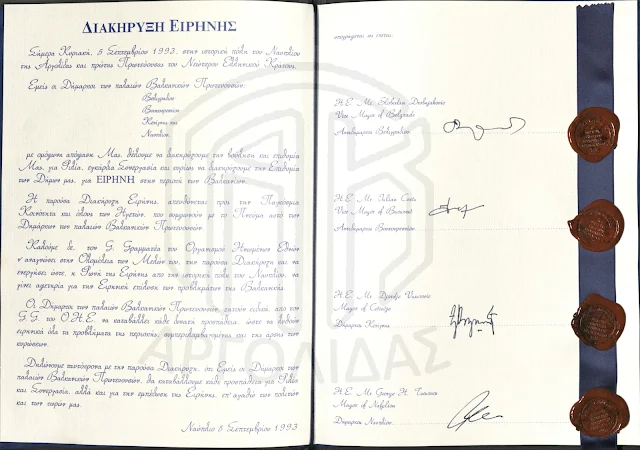 ΔΙΑΚΗΡΥΞΗ ΕΙΡΗΝΗΣ
Σήμερα Κυριακή, 5 Σεπτεμβρίου 1993, στην ιστορική πόλη του Ναυπλίου
της Αργολίδας και πρώτης Πρωτεύουσας του Νεώτερου Ελληνικού Κράτους.
Εμείς οι Δήμαρχοι των παλαιών Βαλκανικών Πρωτευουσών:
Βελιγραδίου
Βουκουρεστίου
Κετίγνης και
Ναυπλίου,
με ομόφωνη απόφαση Μας, θέλουμε να διακηρύξουμε την βούληση και επιθυμία
Μας, για Φιλία, εγκάρδια Συνεργασία και κυρίως να διακηρύξουμε την Επιθυμία
των Δήμων μας, για ΕΙΡΗΝΗ στην περιοχή των Βαλκανίων.
Η παρούσα Διακήρυξη Ειρήνης, απευθύνεται προς την Παγκόσμια
Κοινότητα και όλους των Ηγετών, που συμφωνούν με το Πνεύμα αυτό των
Δημάρχων των παλαιών Βαλκανικών Πρωτευουσών.
Καλούμε δε, τον G. Γραμματέα του Οργανισμού Ηνωμένων Εθνών
ν' αναγνώσει στην Ολομέλεια των Μελών του, την παρούσα Διακήρυξη και να
ενεργήσει ώστε, η Φωνή της Ειρήνης από την ιστορική πόλη του Ναυπλίου, να
γίνει αφετηρία για την Ειρηνική επίλυση των προβλημάτων της Βαλκανικής.
Οι Δήμαρχοι των παλαιών Βαλκανικών Πρωτευουσών, ζητούν ειδικά, από τον
G.G. του Ο.Η.Ε. να καταβάλλει κάθε δυνατή προσπάθεια, ώστε να λυθούν
ειρηνικά όλα τα προβλήματα της περιοχής, συμπεριλαμβανομένης και της άρσης των
κυρώσεων.
Δηλώνουμε ταυτόχρονα με την παρούσα Διακήρυξη, ότι Εμείς οι Δήμαρχοι των
παλαιών Βαλκανικών Πρωτευουσών, θα καταβάλλουμε κάθε προσπάθεια για Φιλία
και Συνεργασία, αλλά και για την εμπέδωση της Ειρήνης, επ' αγαθώ των πολιτών
και των χωρών μας.
Ναύπλιο 5 Σεπτεμβρίου 1993
υπογράφεται ως έπεται:
H.E. Mr Slobodan
Vice Mayor of Belgrade
Αντιδήμαρχος Βελιγραδίου
H.E. Mr Iulian
Vice Mayor of Bucarest
Αντιδήμαρχος Βουκουρεστίου
H.E. Mr
Mayor of Cetinje
Δήμαρχος Κετίγνης
H.E. Mr George H. Tsournos
Mayor of Nafplion
Δήμαρχος Ναυπλίου
ΑΡΓΟΛΙΔΑΣ